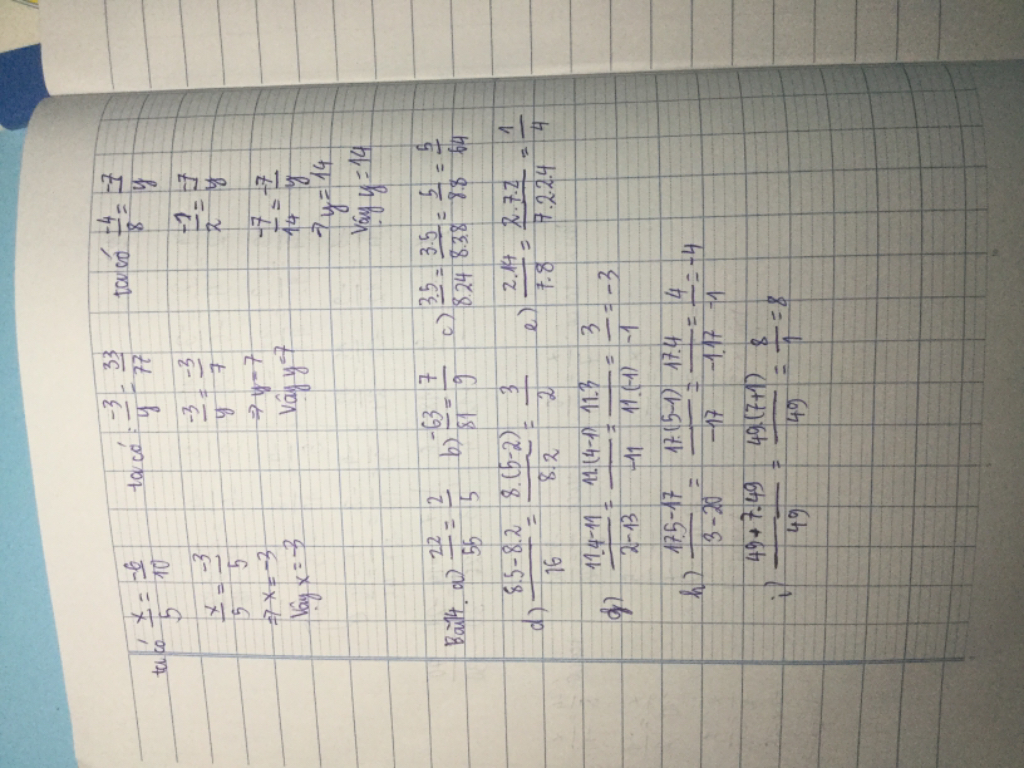 ta có x/5 = -6/10 ta có: -3/y = 33/77 ta có -4/8 = -7/y
x/5 = -3/5 -3/y = -3/7 -1/2 = -7/y
=> x = -3 => y = 7 -7/14 = -7/y
Vậy x = -3 Vậy y = 7 => y = 14
Vậy y = 14
Bài 14. a) 22/55 = 2/5 b) -63/81 = 7/9 c) 3.5/8.24 = 3.5/8.38 = 5/8.8 = 5/64
d) 8.5-8.2/16 = 8.(5-2)/8.2 = 3/2 e) 2.14/7.8 = 2.7.2/7.2.2.4 = 1/4
g) 11.4-11/2-13 = 11.(4-1)/-11 = 11.3/11.(-1) = 3/-1 = -3
h) 17.5-17/3-20 = 17.(5-1)/-17 = 17.4/-1.17 = 4/-1 = -4
i) 49+7.49/49 = 49.(7+1)/49 = 8/1 = 8